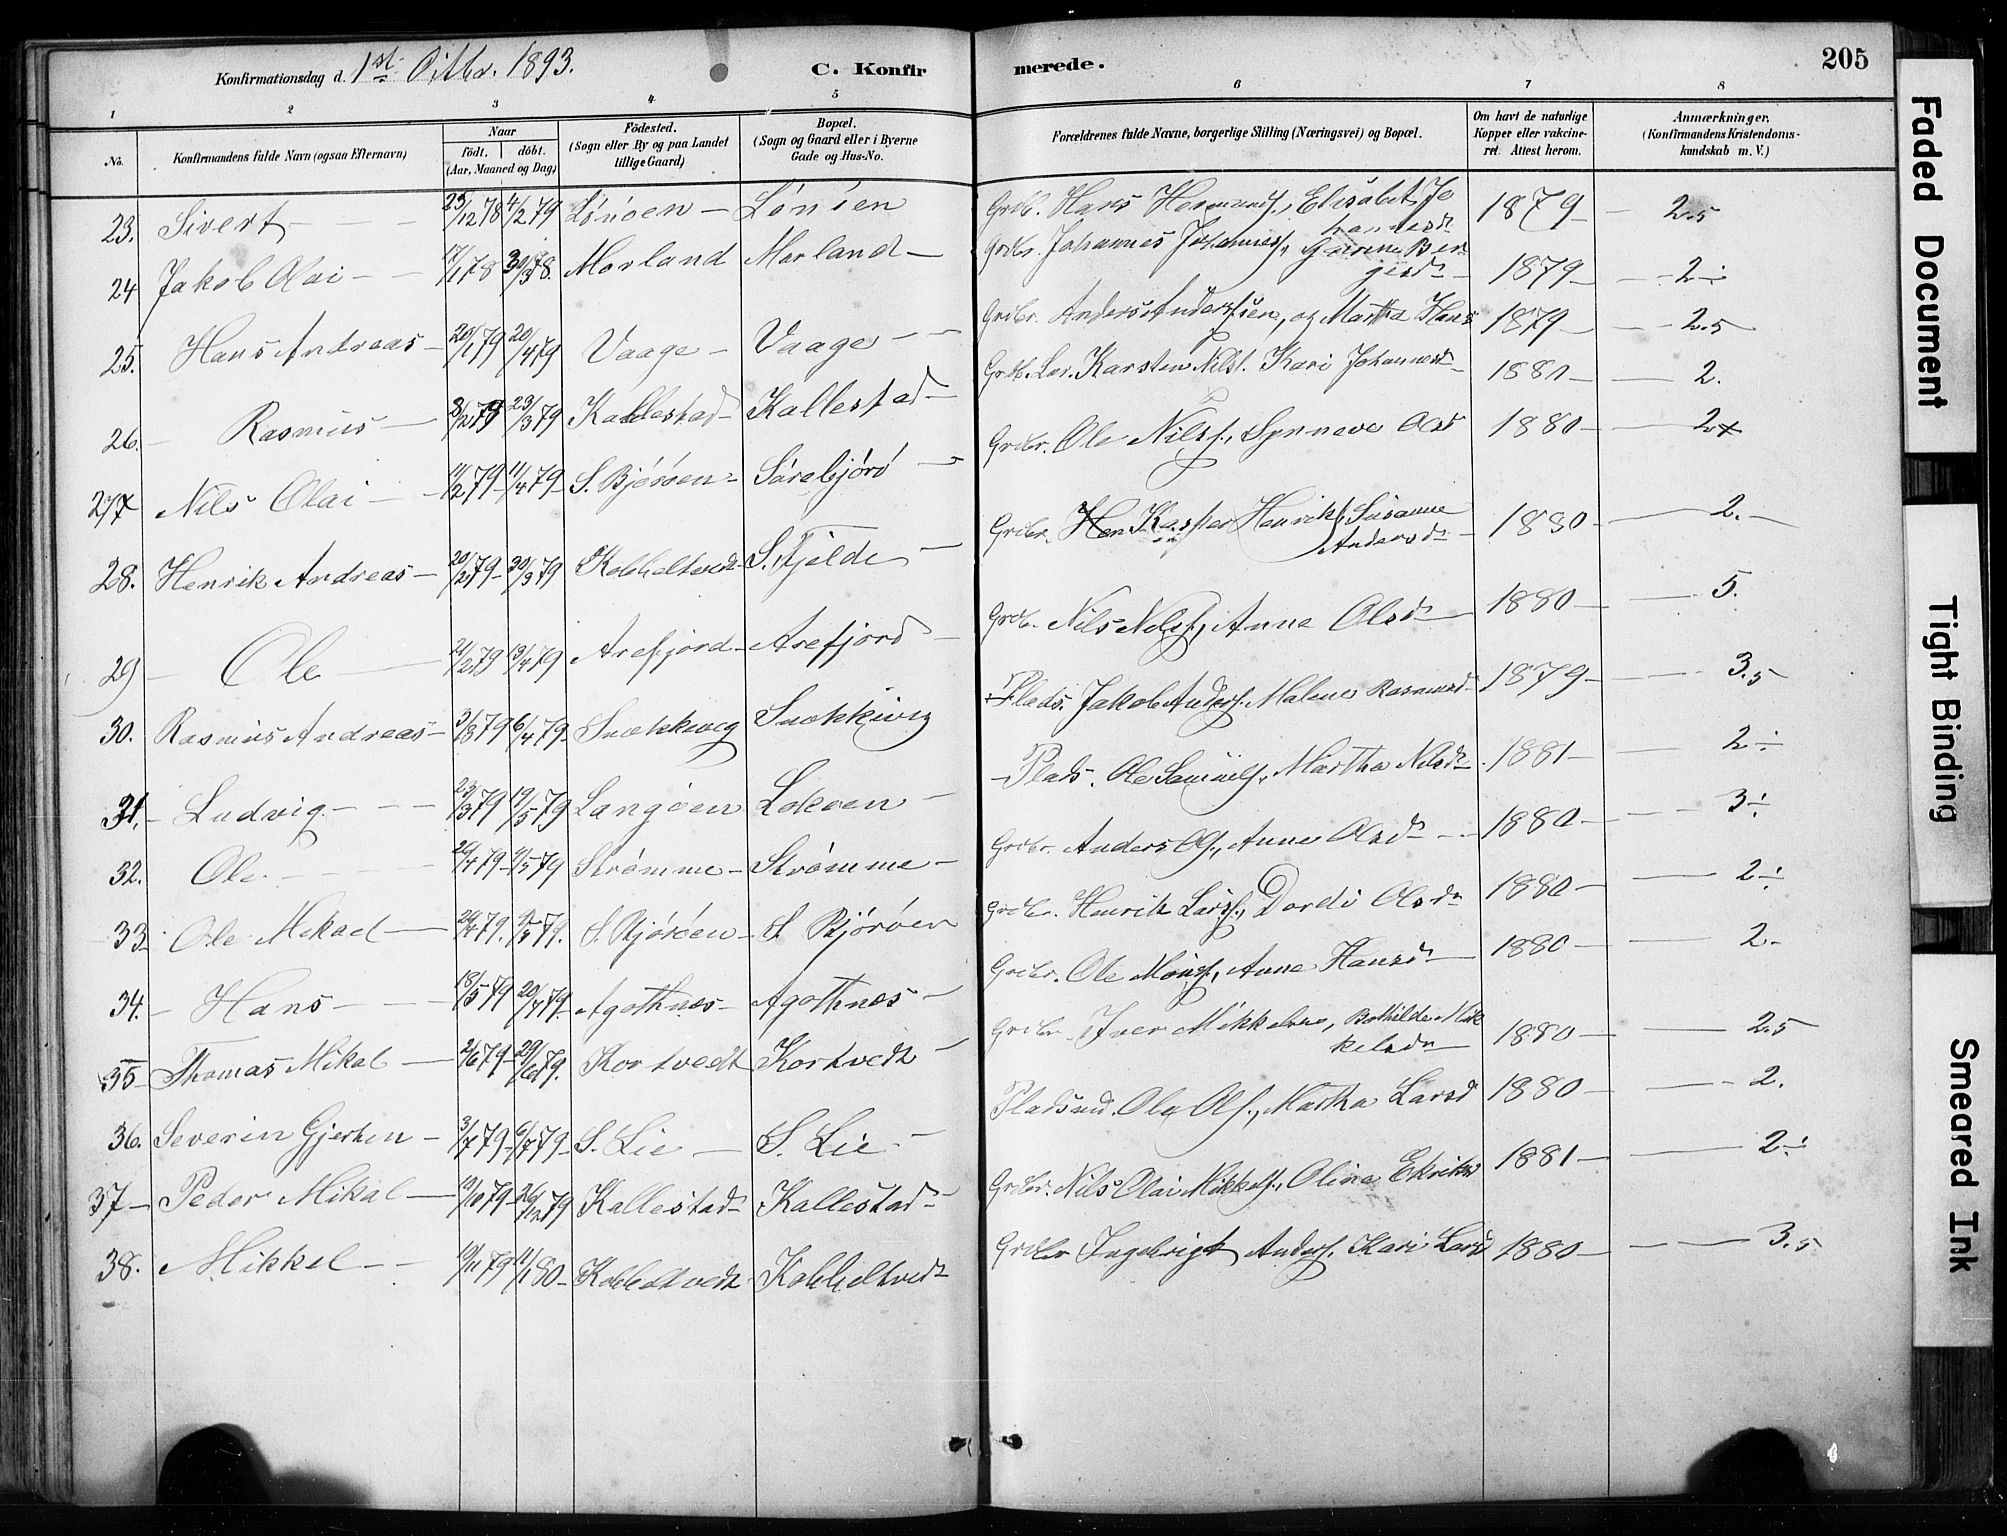 Konfirmationsdag d. 1st Octbr. 1893. C. Konfirmerede. 205
1 2 3 4 5 6 7 8
No. Konfirmandens fulde Navn (ogsaa Efternavn) Naar födt. döbt. (Aar, Maaned og Dag) Födested. (Sogn eller By og paa Landet tillige Gaard) Bopæl. (Sogn og Gaard eller i Byerne Gade og Hus-No. Forældrenes fulde Navne, borgerlige Stilling (Næringsvei) og Bopæl. Om havt de naturlige Kopper eller vakcineret. Attest herom. Anmærkninger, (Konfirmandens Kristendomskundskab m. V.)
23. Sivert 25/12 78 4/2 79 Lönöen Lönöen Grdbr. Hans Hermands., Elisabet Johannesd. 1879 2.5
24 Jakob Olai 17/1 78 30/3 78. Morland Morland Grdbr. Johannes Johanness., Berjesd. 1879 2÷
25. Hans Andreas 20/1 79 20/4 79 Vaage Vaage Grdbr. Anders Anderssen, og Martha Hans 1879 2.5
26. Rasmus 3/2 79 23/3 79 Kallestad Kallestad Karsten Nils. Kari Johannesd. 1881 2.
27 Nils Olai 11/2 79 11/4 79 S. Björöen Sörebjörö Grdbr. Ole Nilss., Synneve Olsd 1880 2+
28. Henrik Andreas 20/2 79 30/3 79 Kobbeltvedt S. Fjelde Grdbr. Kasper Henriks, Susanne Andersd. 1880 2.
29 Ole 21/2 79 13/4 79 Arefjord Arefjord Grdbr. Nils Nilss., Anne Olsd. 1880 5.
30. Rasmus Andreas 3/3 79 6/4 79 Snekkevig Snekkevig Plads. Jakob Anders. Malene Rasmusd. 1879 3.5
31. Ludvig 23/3 79 19/5 79 Langöen Loköen Plads. Ole Samuels., Martha Nilsd. 1881 2÷
32. Ole 20/4 79 4/5 79 Strömme Strömme Grdbr. Anders Ols., Anne Olsd. 1880 3÷
33 Ole Mikael 29/4 79. 79. S. Björöen S. Björöen Grdbr. Henrik Larss., Dordi Olsd. 1880 2÷
34. Hans 18/5 79 20/7 79. Agothnes Agothnes Grdbr. Ole Monss., Anne Hansd. 1880 2.
35 Thomas Mikal 2/6 79 29/6 79. Kortvedt Kortvedt Grdbr. Iver Mikkelsen, Bothilde Mikkelsd. 1880 2.5
36. Severin Gjerken 3/7 79 6/7 79 S. Lie S. Lie Pladsmd. Ole Ols., Martha Larsd 1880 2.
37 Peder Mikal 19/10 79 26/12 79 Kallestad Kallestad Grdbr. Nils Olai Mikkels., Olina Eriksd 1881 2÷
38. Mikkel 19/11 79 11/1 80 Kobbeltvedt Kobbeltvedt Grdbr Ingebrigt Anders. Kari Larsd 1880 3.5
Faded Document
Tight Binding
Smeared Ink